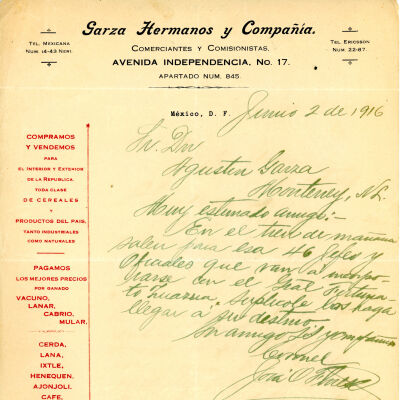 Garza Hermanos y Compañía.
Comerciantes y Comisionistas.
Avenida Independencia, No. 17.
Apartado Num. 845.
Tel. Mexicana
Num. 14-43 Neri.
Tel. Ericsson
Num. 22-87.
México, D. F. Junio 2 de 1916
Sr. Dn
Agustin Garza
Monterrey, N.L.
Muy estimado amigo:-
En el tren de mañana
salen para esa 46 Jefes y
Oficiales que van a incorpo-
rarse con el Gral
Suplicole los haga
llegar a su destino
Su amigo y compañero
Coronel
José O.
COMPRAMOS
Y VENDEMOS
PARA
EL INTERIOR Y EXTERIOR
DE LA REPUBLICA,
TODA CLASE
DE CEREALES
Y
PRODUCTOS DEL PAIS,
TANTO INDUSTRIALES
COMO NATURALES
PAGAMOS
LOS MEJORES PRECIOS
POR GANADO
VACUNO,
LANAR,
CABRIO,
MULAR.
CERDA,
LANA,
IXTLE,
HENEQUEN,
AJONJOLI,
CAFE,